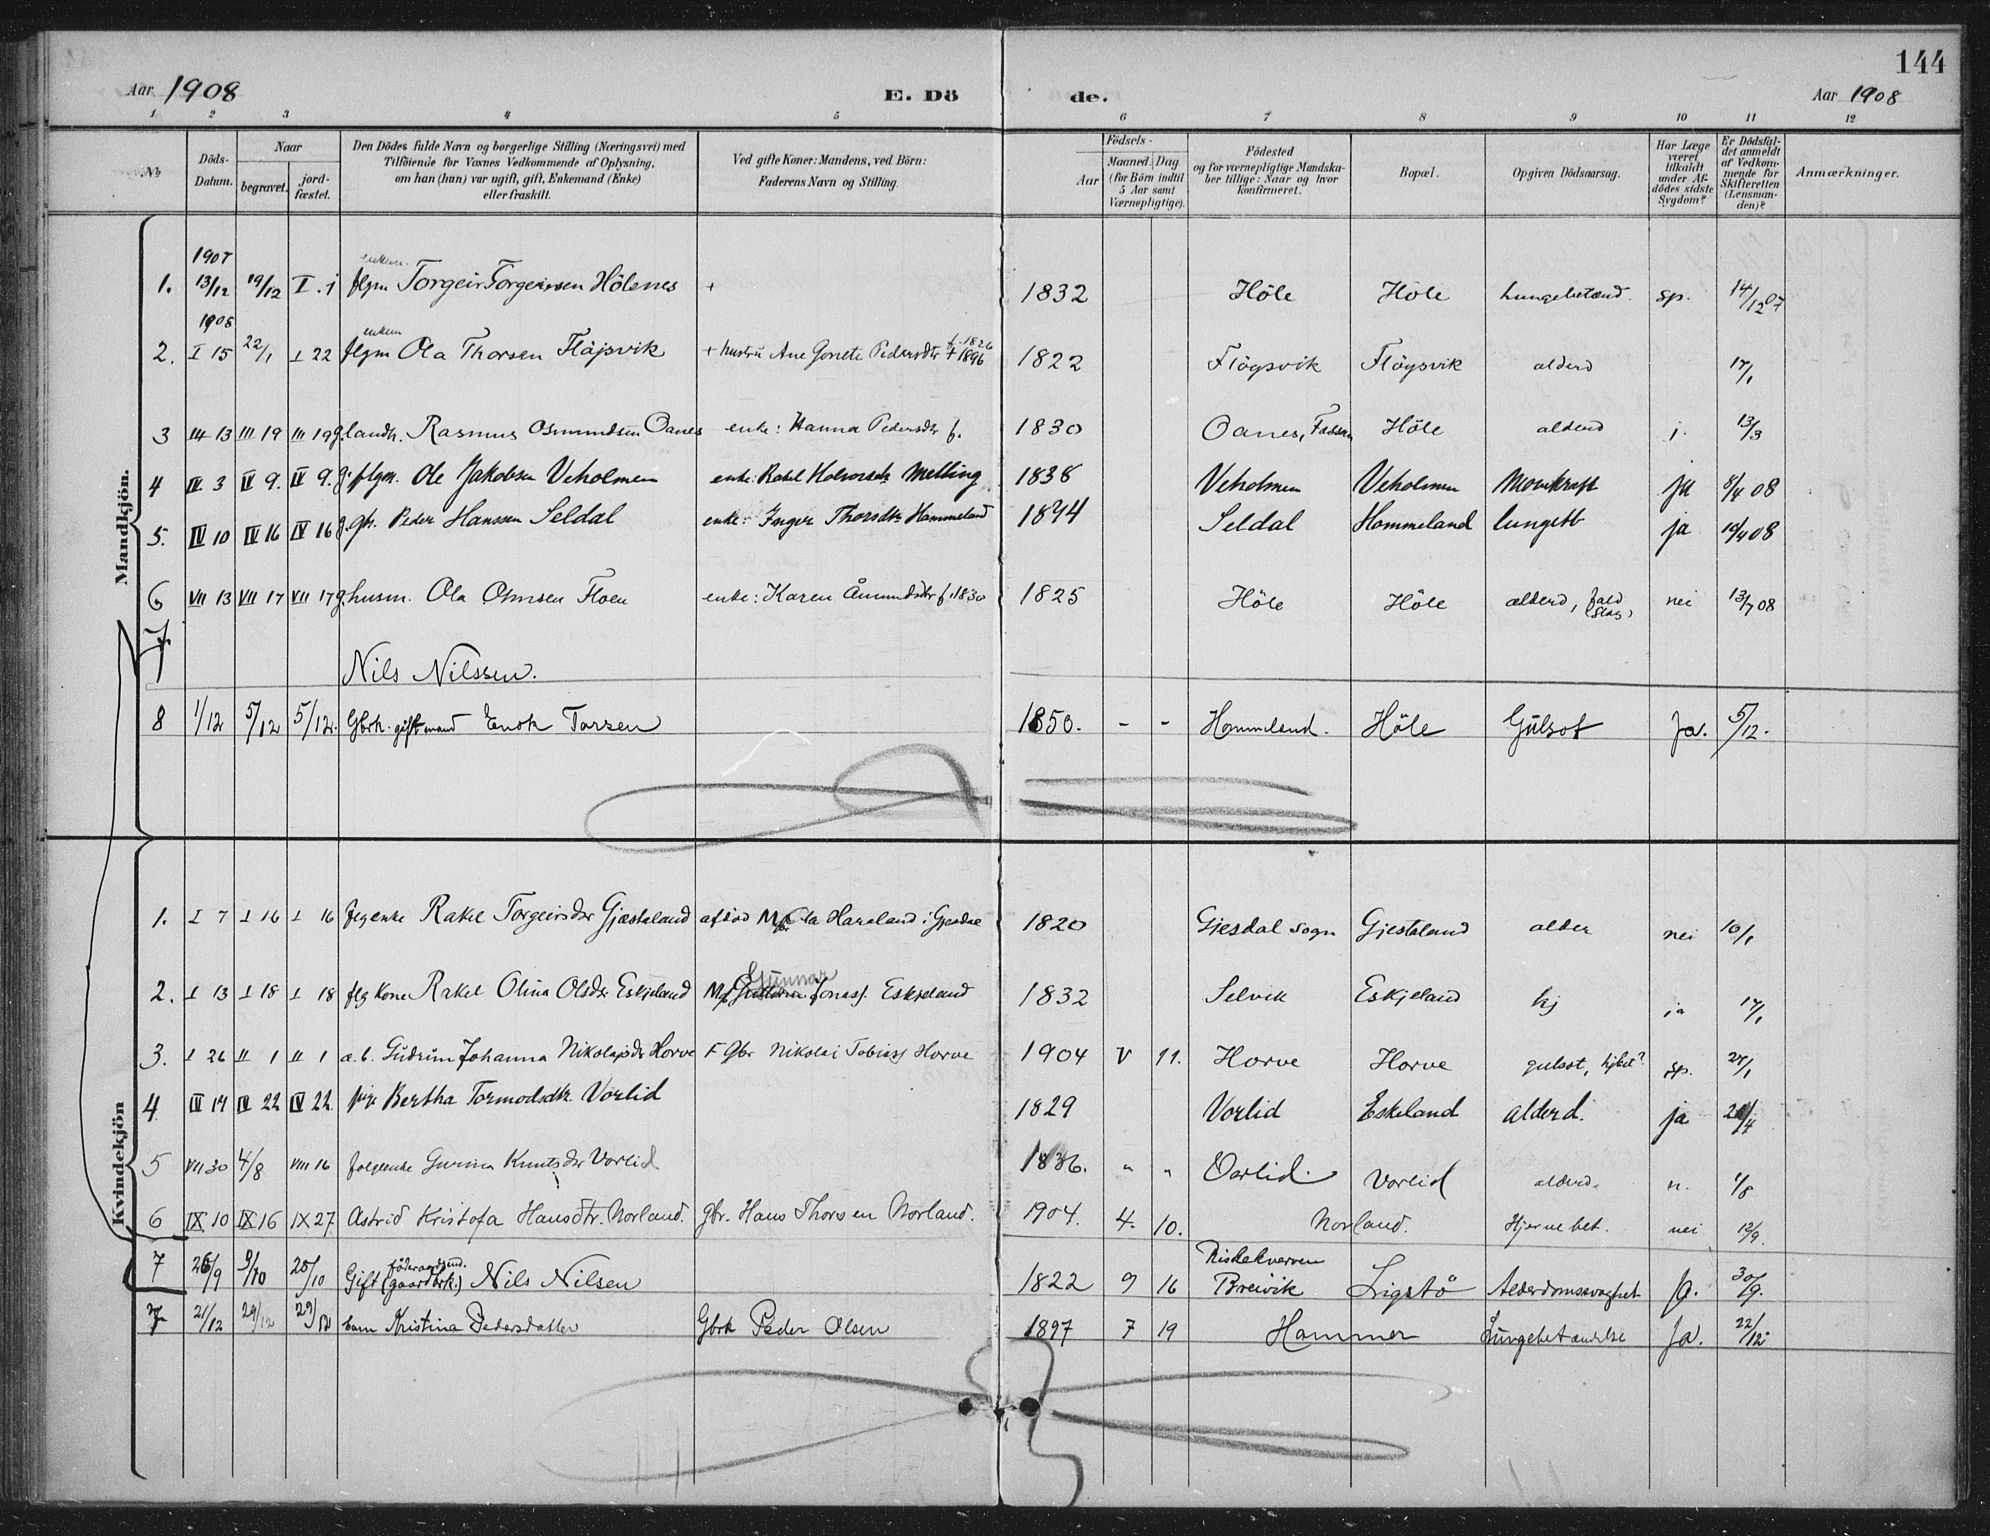 144
Aar 1908 E. Dö de. Aar 1908
1 2 3 4 5 6 7 8 9 10 11 12
No
Döds-Datum.
Naar
begravet.
jord-fæstet.
Den Dödes fulde Navn og borgerlige Stilling (Næringsvei) med
Tilföiende for Voxnes Vedkommende af Oplysning,
om han (hun) var ugift, gift, Enkemand (Enke)
eller fraskilt.
Ved gifte Koner: Mandens, ved Börn:
Faderens Navn og Stilling.
Födsels-
Aar
Maaned. Dag
(for Börn indtil
5 Aar samt
Værnepligtige).
Födested
og for værnepligtige Mandska-
ber tillige: Naar og hvor
konfirmeret.
Bopæl.
Opgiven Dödsaarsag.
Har Læge
været
tilkaldt
under Af-
dödes sidste
Sygdom?
Er Dödsfal-
det anmeldt
af Vedkom-
mende for
Skifteretten
(Lensman-
den)?
Anmærkninger.
Mandkjön.
1907
enkem.
1. 13/12 19/12 I. 1 flgm Torgeir Torgeirsen Hölenes + 1832 Höle Höle Lungebetænd. sp. 14/12 07
1908
enkem f. 1826
2. I 15 22/1 I 22 flgm Ola Thorsen Flöjsvik + hustru Ane Gorete Pedersdtr + 1896 1822 Flögsvik Flöysvik alderd 17/1
3 III 13 III 19 III 19 g. landh. Rasmus Osmundsen Oanes enke: Hanna Pedersdtr f. 1830 Oanes, Fossan Höle alderd j. 13/3
4 IV 3 IV 9. IV 9. g. flgm. Ole Jakobsen Veholmen enke: Rakel Halvorsdtr Melling 1838 Veholmen Veholmen ja 8/4 08
5. IV 10 IV 16 IV 16 g. gbr. Peder Hanssen Seldal enke: Inger Thorsdtr Hommeland 1844 Seldal Hommeland lungebt ja 10/4 08
6 VII 13 VII 17 VII 17 g. husm. Ola Osmsen Floen enke: Karen Åmundsdtr f. 1830 1825 Höle Höle alderd, fald slag, nei 13/7 08
7 Nils Nilssen.
8 1/12 5/12 5/12. Gbrk. gift mand Enok Torsen 1850. - - Hommeland. Höle Gulsot Ja. 5/12.
Kvindekjön
1. I 7 I 16 I 16 flg enke Rakel Torgeirsdtr Gjesteland Haraland i Gjesdal 1820 Giesdal sogn Gjestaland alder nei 10/1
Gunnar
2. I 13 I 18 I 18 flg kone Rakel Olina Olsdtr Eskjeland Jonass. Eskjeland 1832 Selvik Eskjeland ja 17/1
3. I 26 II 1 II 1 Gudrun Johanna Nikolajsdtr Horve F Gbr Nikolai Tobiass Horve 1904 V 11. Horve Horve gulsot, sp. 27/1
4 IV 14 IV 22 IV 22 pige Bertha Tormodsdtr. Vorlid 1829 Vorlid Eskeland alderd. ja
5 VII 30 4/8 VIII 16 folgeenke Gurina Knutsdtr Vorlid 1836. " " Vorlid. Vorlid alderd. n. 1/8
6 IX 10 IX 16 IX 27 Astrid Kristofa Hansdtr. Norland. Gbr. Hans Thorsen Norland. 1904. 4. 10. Norland. Hjernebet. nei 12/9.
föderaadsmd. Riskekverven
7 26/9 9/10 25/10 Gift (gaardbrk.) Nils Nilsen 1822 9 16 Breivik Ligstö Alderdomssvaghet Ja. 30/9.
7 21/12 29/12 29/12 barn Kristina Pedersdatter Gbrk Peder Olsen 1897 7 19 Hommer Lungebetændelse Ja. 22/12.